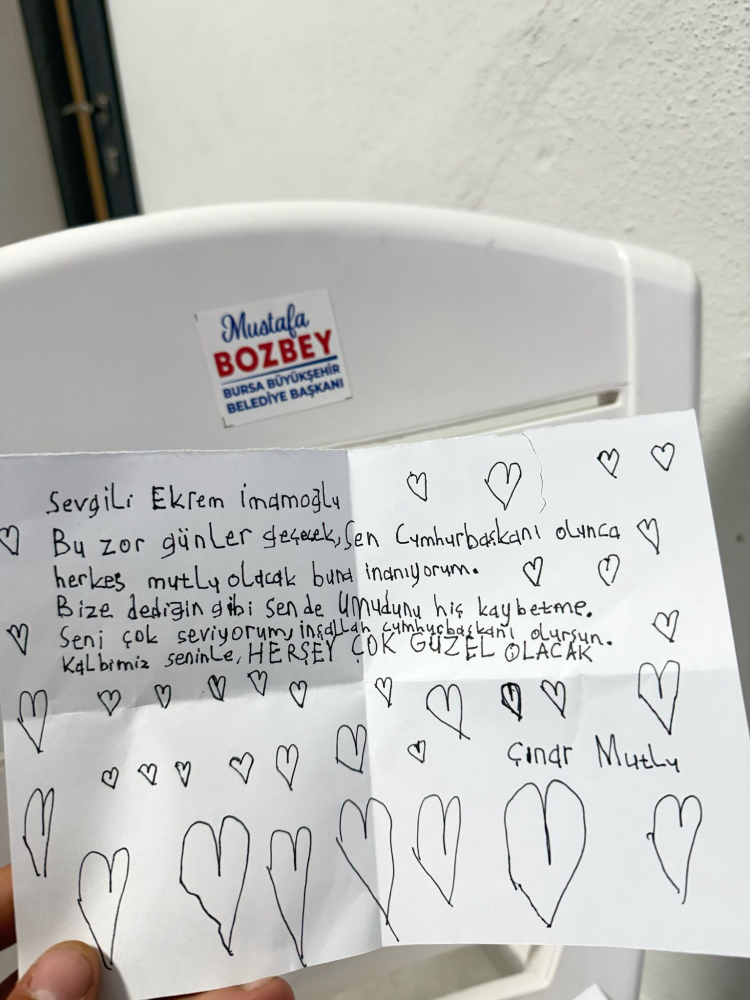 Mustafa
BOZBEY
BURSA BÜYÜKŞEHİR
BELEDİYE BAŞKANI
Sevgili Ekrem imamoğlu
Bu zor günler geçecek, Sen Cumhurbaşkanı olunca
herkes mutlu olacak buna inanıyorum.
Bize dediğin gibi sen de Umudunu hiç kaybetme.
Seni çok seviyorum, inşallah cumhurbaşkanı olursun.
Kalbimiz seninle, HERŞEY ÇOK GÜZEL OLACAK
Çınar Mutlu